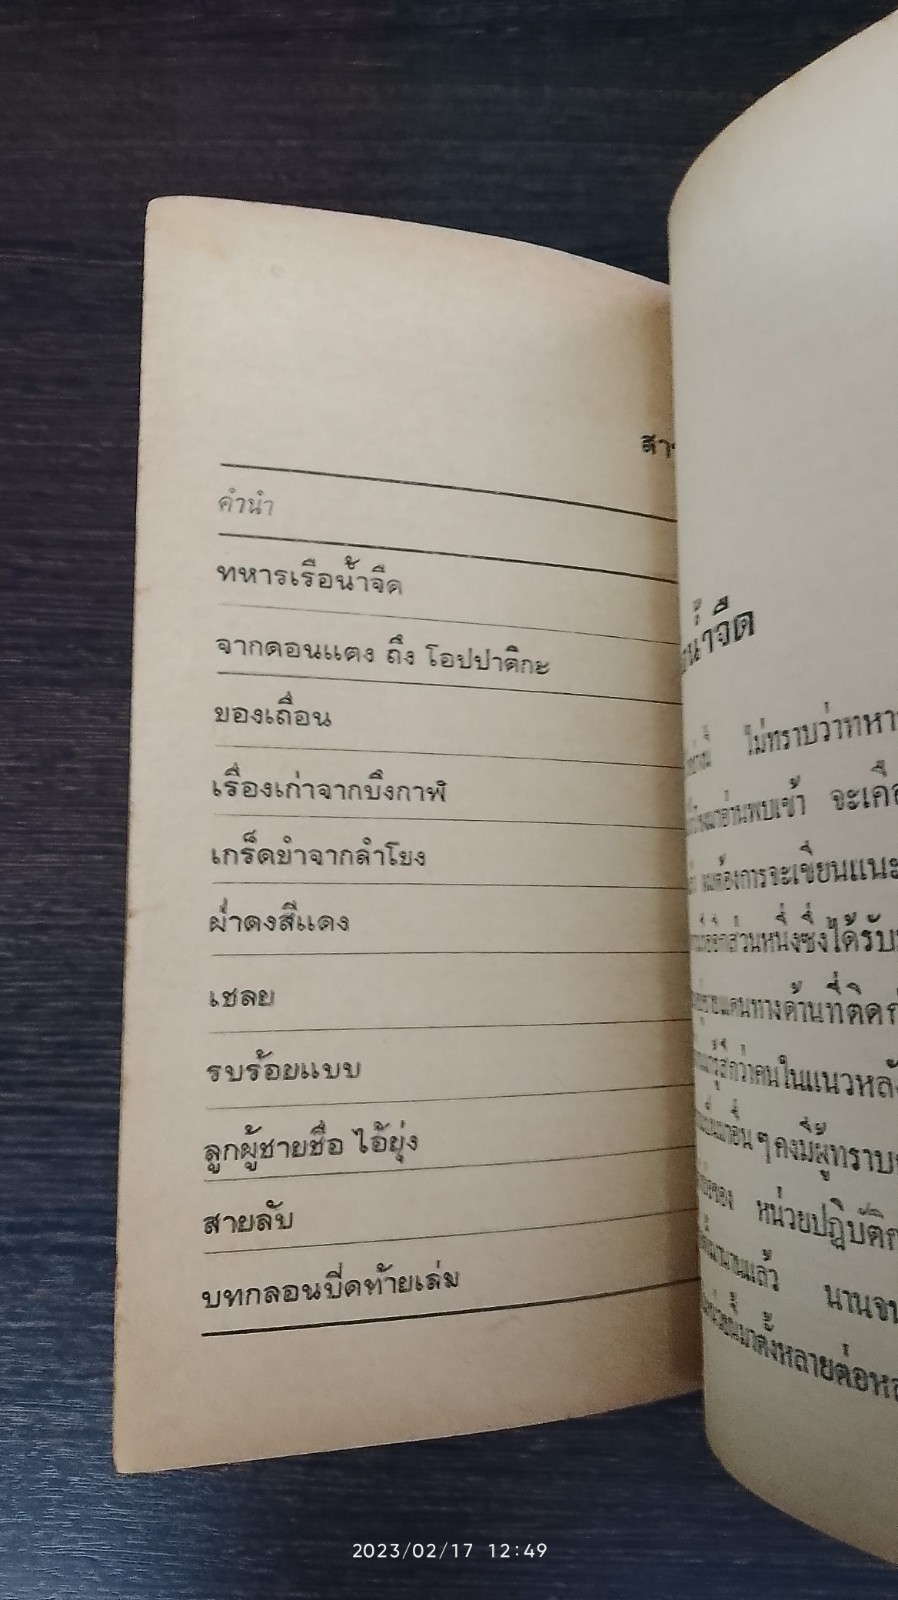 คำนำ
ทหารเรือน้ำจืด
จากดอนแตง ถึง โอปปาติกะ
ของเถื่อน
เรื่องเก่าจากบึงกาฬ
เกร็ดขำจากลำโขง
ฝ่าดงสีแดง
เชลย
รบร้อยแบบ
ลูกผู้ชายชื่อ ไอ้ยุ่ง
สายลับ
บทกลอนปิดท้ายเล่ม
น้ำจืด
ไม่ทราบว่าทหาร
อ่านพบเข้า จะเคือ
ต้องการจะเขียนแนะ
ส่วนหนึ่งซึ่งได้รับ
แดนทางด้านที่ติด
รู้สึกว่าคนในแนวหลัง
อื่น ๆ คงมีผู้ทราบ
ของ หน่วยปฏิบัติ
นานแล้ว นานจน
นี้มาตั้งหลายต่อ
2023/02/17 12:49